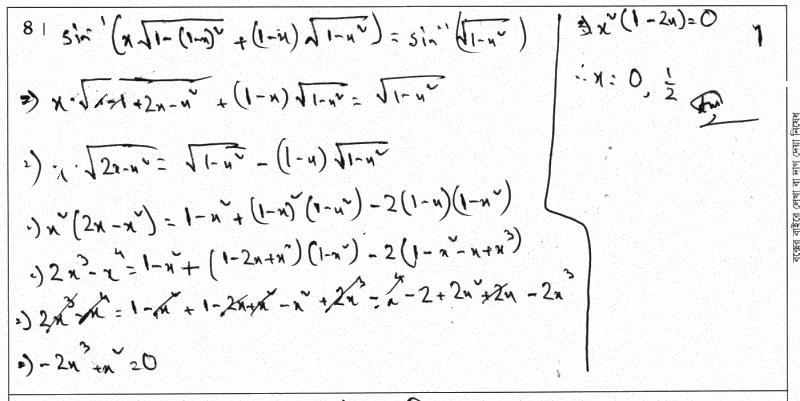 8। sin⁻¹(x√(1-(1-x)²) + (1-x)√(1-x²)) = sin⁻¹(√(1-x²))
⇒ x·√(1-1+2x-x²) + (1-x)√(1-x²) = √(1-x²)
⇒ x·√(2x-x²) = √(1-x²) - (1-x)√(1-x²)
⇒ x²(2x-x²) = 1-x² + (1-x)²(1-x²) - 2(1-x)(1-x²)
⇒ 2x³-x⁴ = 1-x² + (1-2x+x²)(1-x²) - 2(1-x²-x+x³)
⇒ 2x³-x⁴ = 1-x² + 1-2x+x²-x²+2x³-x⁴-2+2x²+2x-2x³
⇒ -2x³+x² = 0
⇒ x²(1-2x)=0
∴ x = 0, 1/2
Ans
বক্সের বাইরে লেখা বা দাগ দেয়া নিষেধ